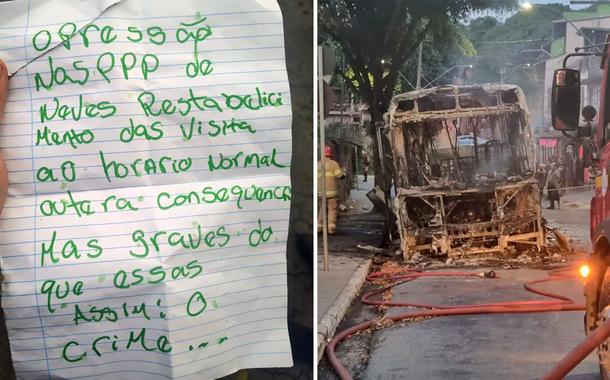 OPressão
NasPPP de
Neves Restabelici
Mento das Visita
ao horario Normal
outera consequencia
Mas graves do
que essas
Assim: O
Crime....